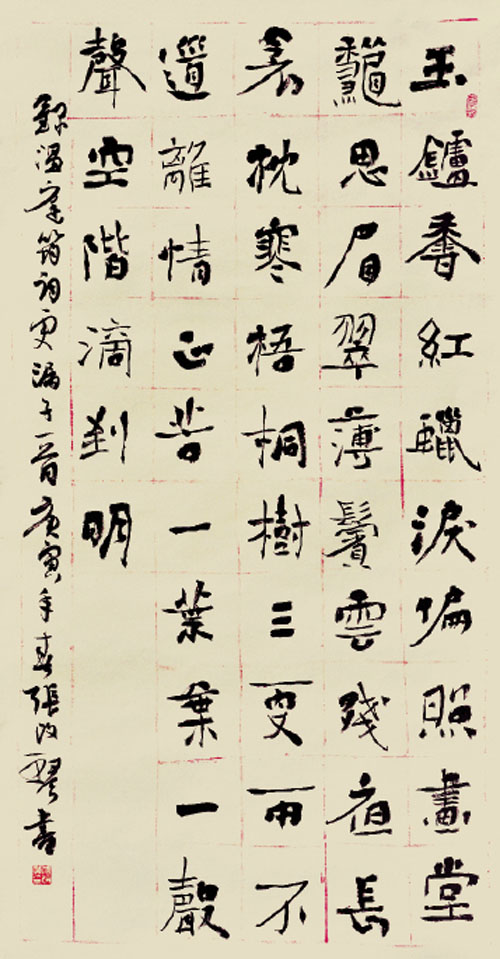 玉鑪香紅蠟淚偏照畫堂
龝思眉翠薄鬢雲殘夜長
衾枕寒梧桐樹三更雨不
道離情正苦一葉葉一聲
聲空階滴到明
錄溫庭筠詞更漏子一首庚寅年春張改琴書